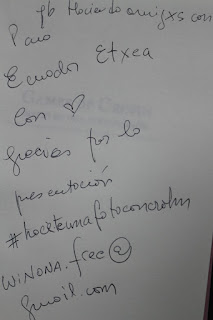 fb Haciendo amigxs con
Para
Ecuador Etxea
Con ♡
gracias por la
presentación
#hocktemafotoconcrohn
WiNONA.free@
gmail.com